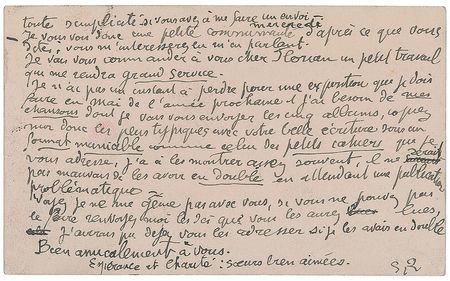 toute simplicité si vous avez à me faire un envoi.
mercredi
Je vous vois dans une petite communauté d'après ce que vous
dites, vous m'intéresserez en m'en parlant.
Je vais vous commander à vous cher Florian un petit travail
qui me rendra grand service.
Je n'ai pas un instant à perdre pour une exposition que je dois
faire en mai de l'année prochaine et j'ai besoin de mes
chansons dont je vais vous envoyer les cinq albums, copiez
moi donc les plus typiques avec votre belle écriture sous un
format maniable comme celui des petits cahiers que je
vous adresse, j'ai à les montrer assez souvent, il ne serait
pas mauvais de les avoir en double en attendant une publication
problématique
Voyez je ne me gêne pas avec vous, si vous ne pouvez pas
le faire renvoyez moi les ici que vous les aurez lues,
j'aurais pu déjà vous les adresser si je les avais en double
Bien amicalement à vous.
Espérance et Charité : sœurs bien aimées.